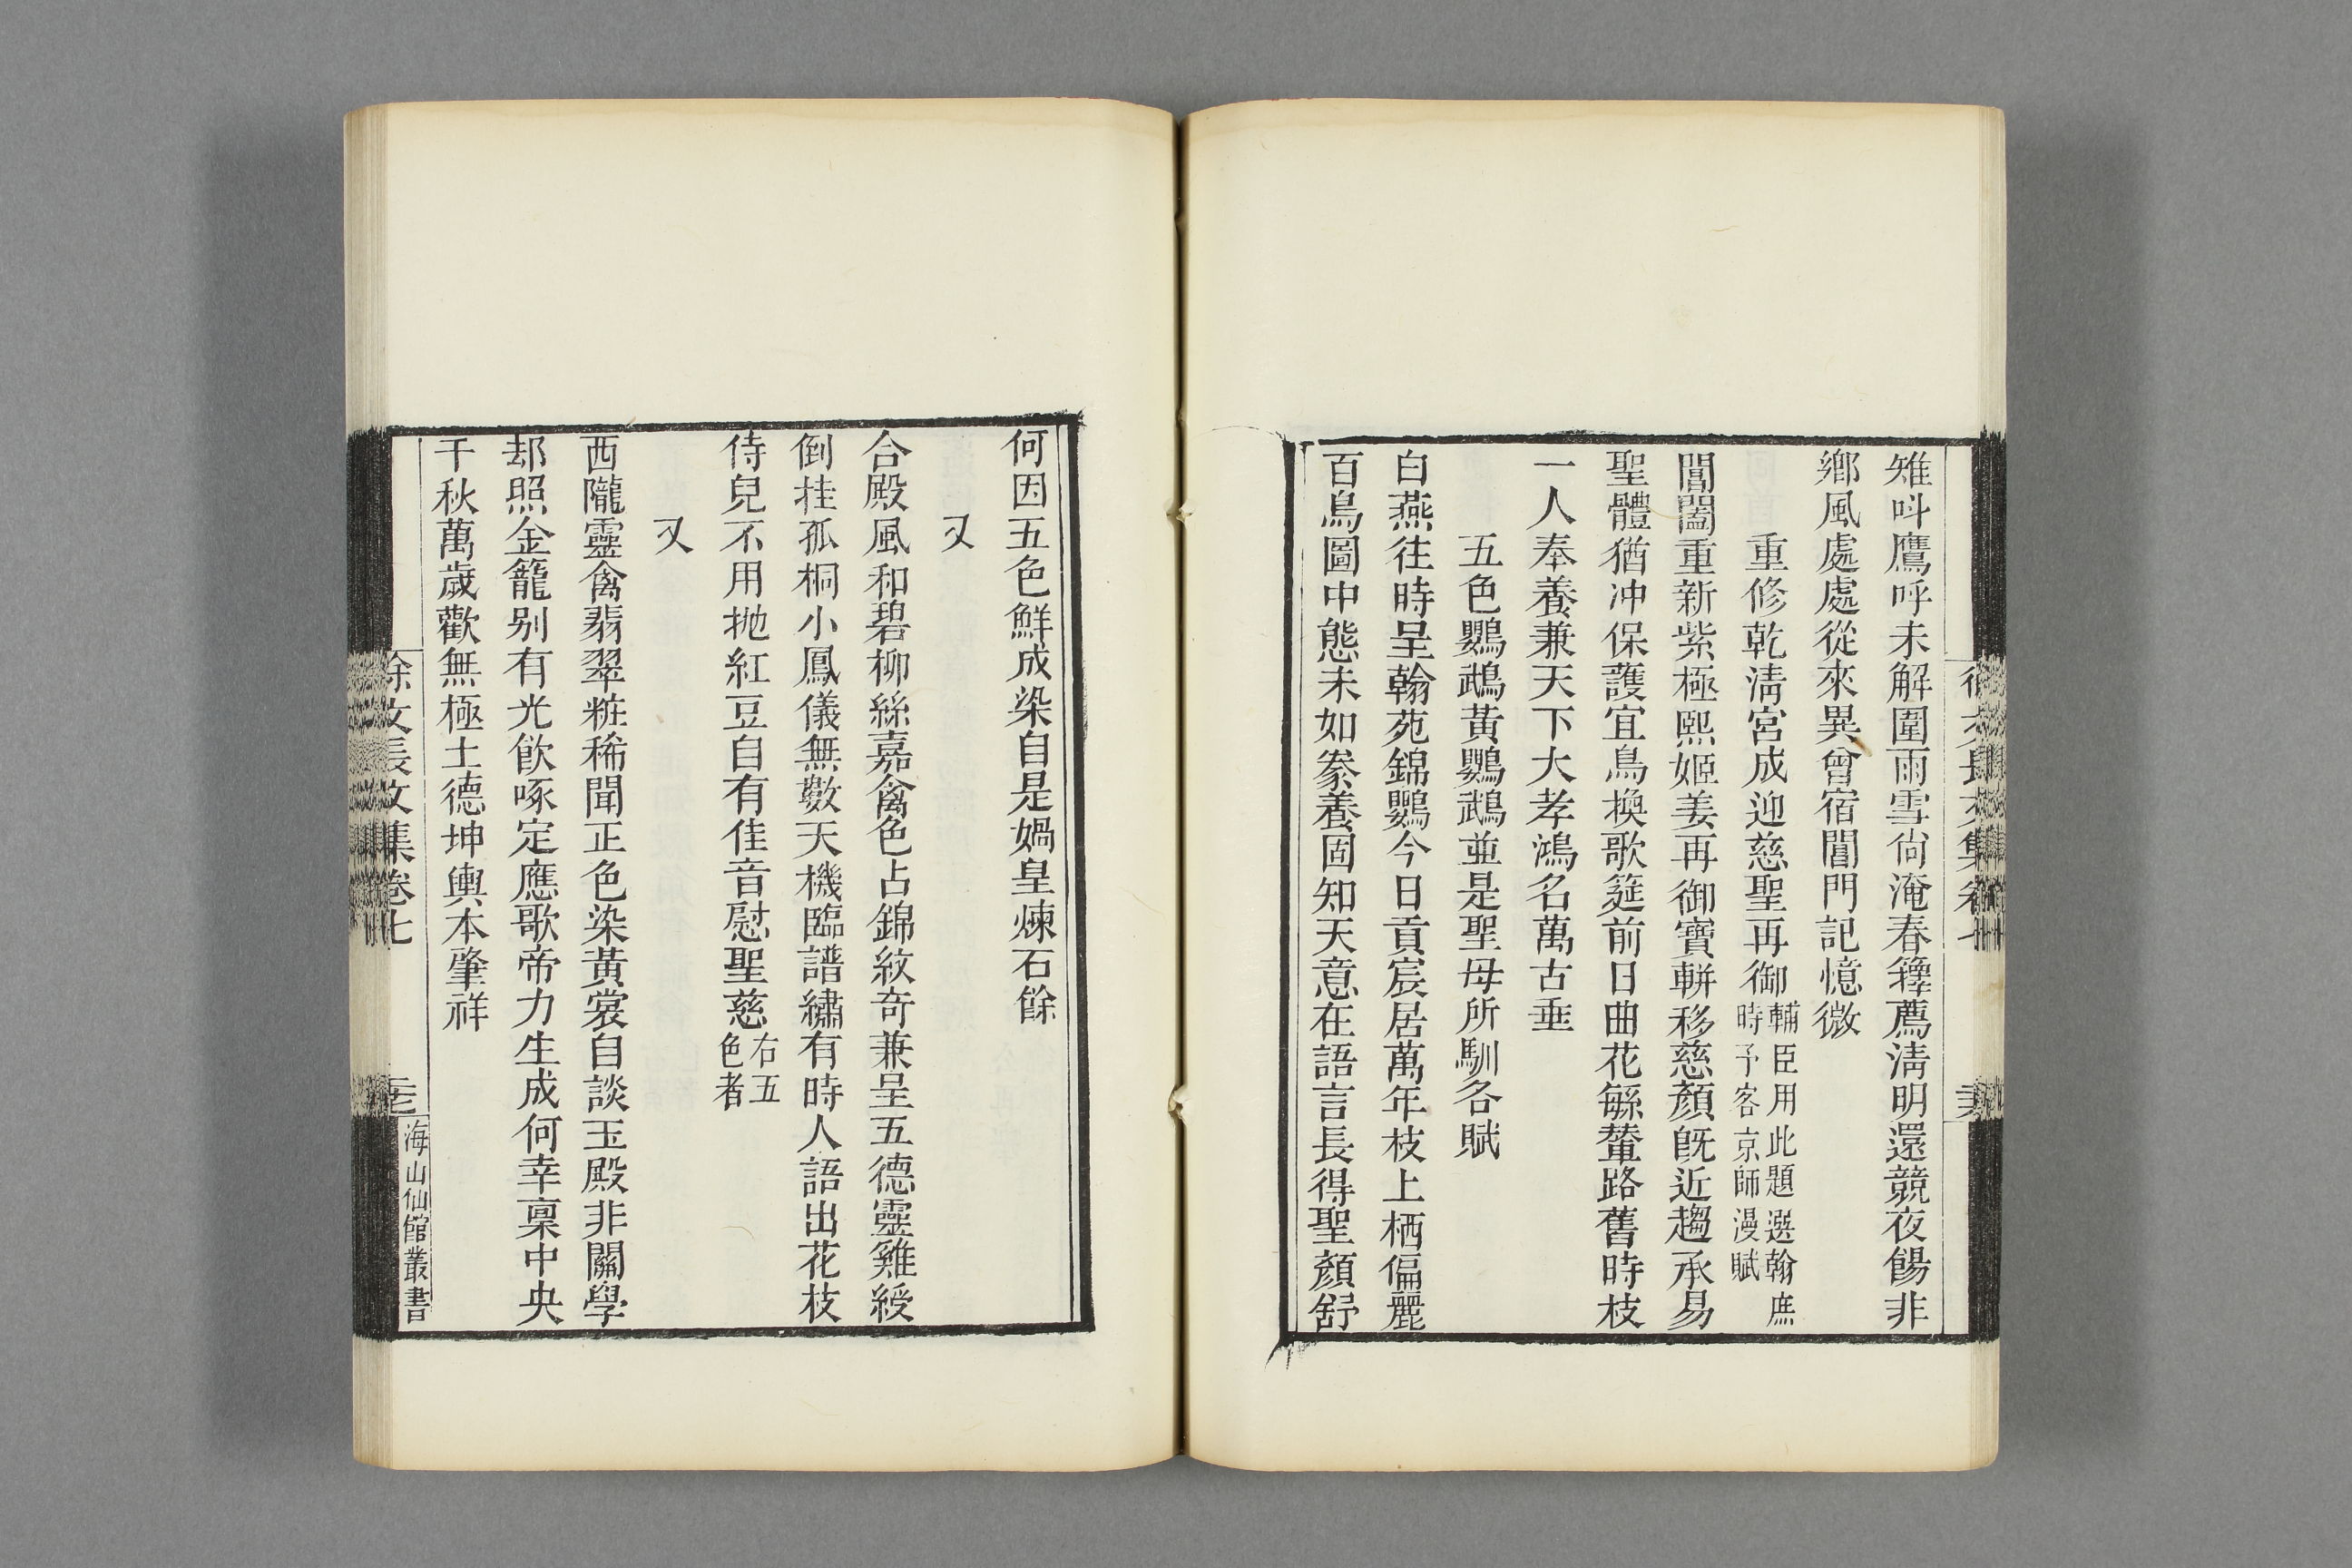 雉呌鷹呼未解圍雨雪尙淹春籜薦淸明還競夜餳非
鄉風處處從來異曾宿閶門記憶微
重修乾淸宮成迎慈聖再御輔臣用此題選翰庶
時予客京師漫賦
閶闔重新紫極熙姬姜再御寶軿移慈顏旣近趨承易
聖體猶冲保護宜鳥換歌筵前日曲花緐輦路舊時枝
一人奉養兼天下大孝鴻名萬古垂
五色鸚鵡黃鸚鵡並是聖母所馴各賦
白燕往時呈翰苑錦鸚今日貢宸居萬年枝上栖偏麗
百鳥圖中態未如豢養固知天意在語言長得聖顏舒
何因五色鮮成染自是媧皇煉石餘
又
合殿風和碧柳絲嘉禽色占錦紋奇兼呈五德靈雞綬
倒挂孤桐小鳳儀無數天機臨譜繡有時人語出花枝
侍兒不用抛紅豆自有佳音慰聖慈右五
色者
又
西隴靈禽翡翠粧稀聞正色染黃裳自談玉殿非關學
却照金籠别有光飮啄定應歌帝力生成何幸稟中央
千秋萬歲歡無極土德坤輿本肇祥
徐文長文集卷七
海山仙館叢書